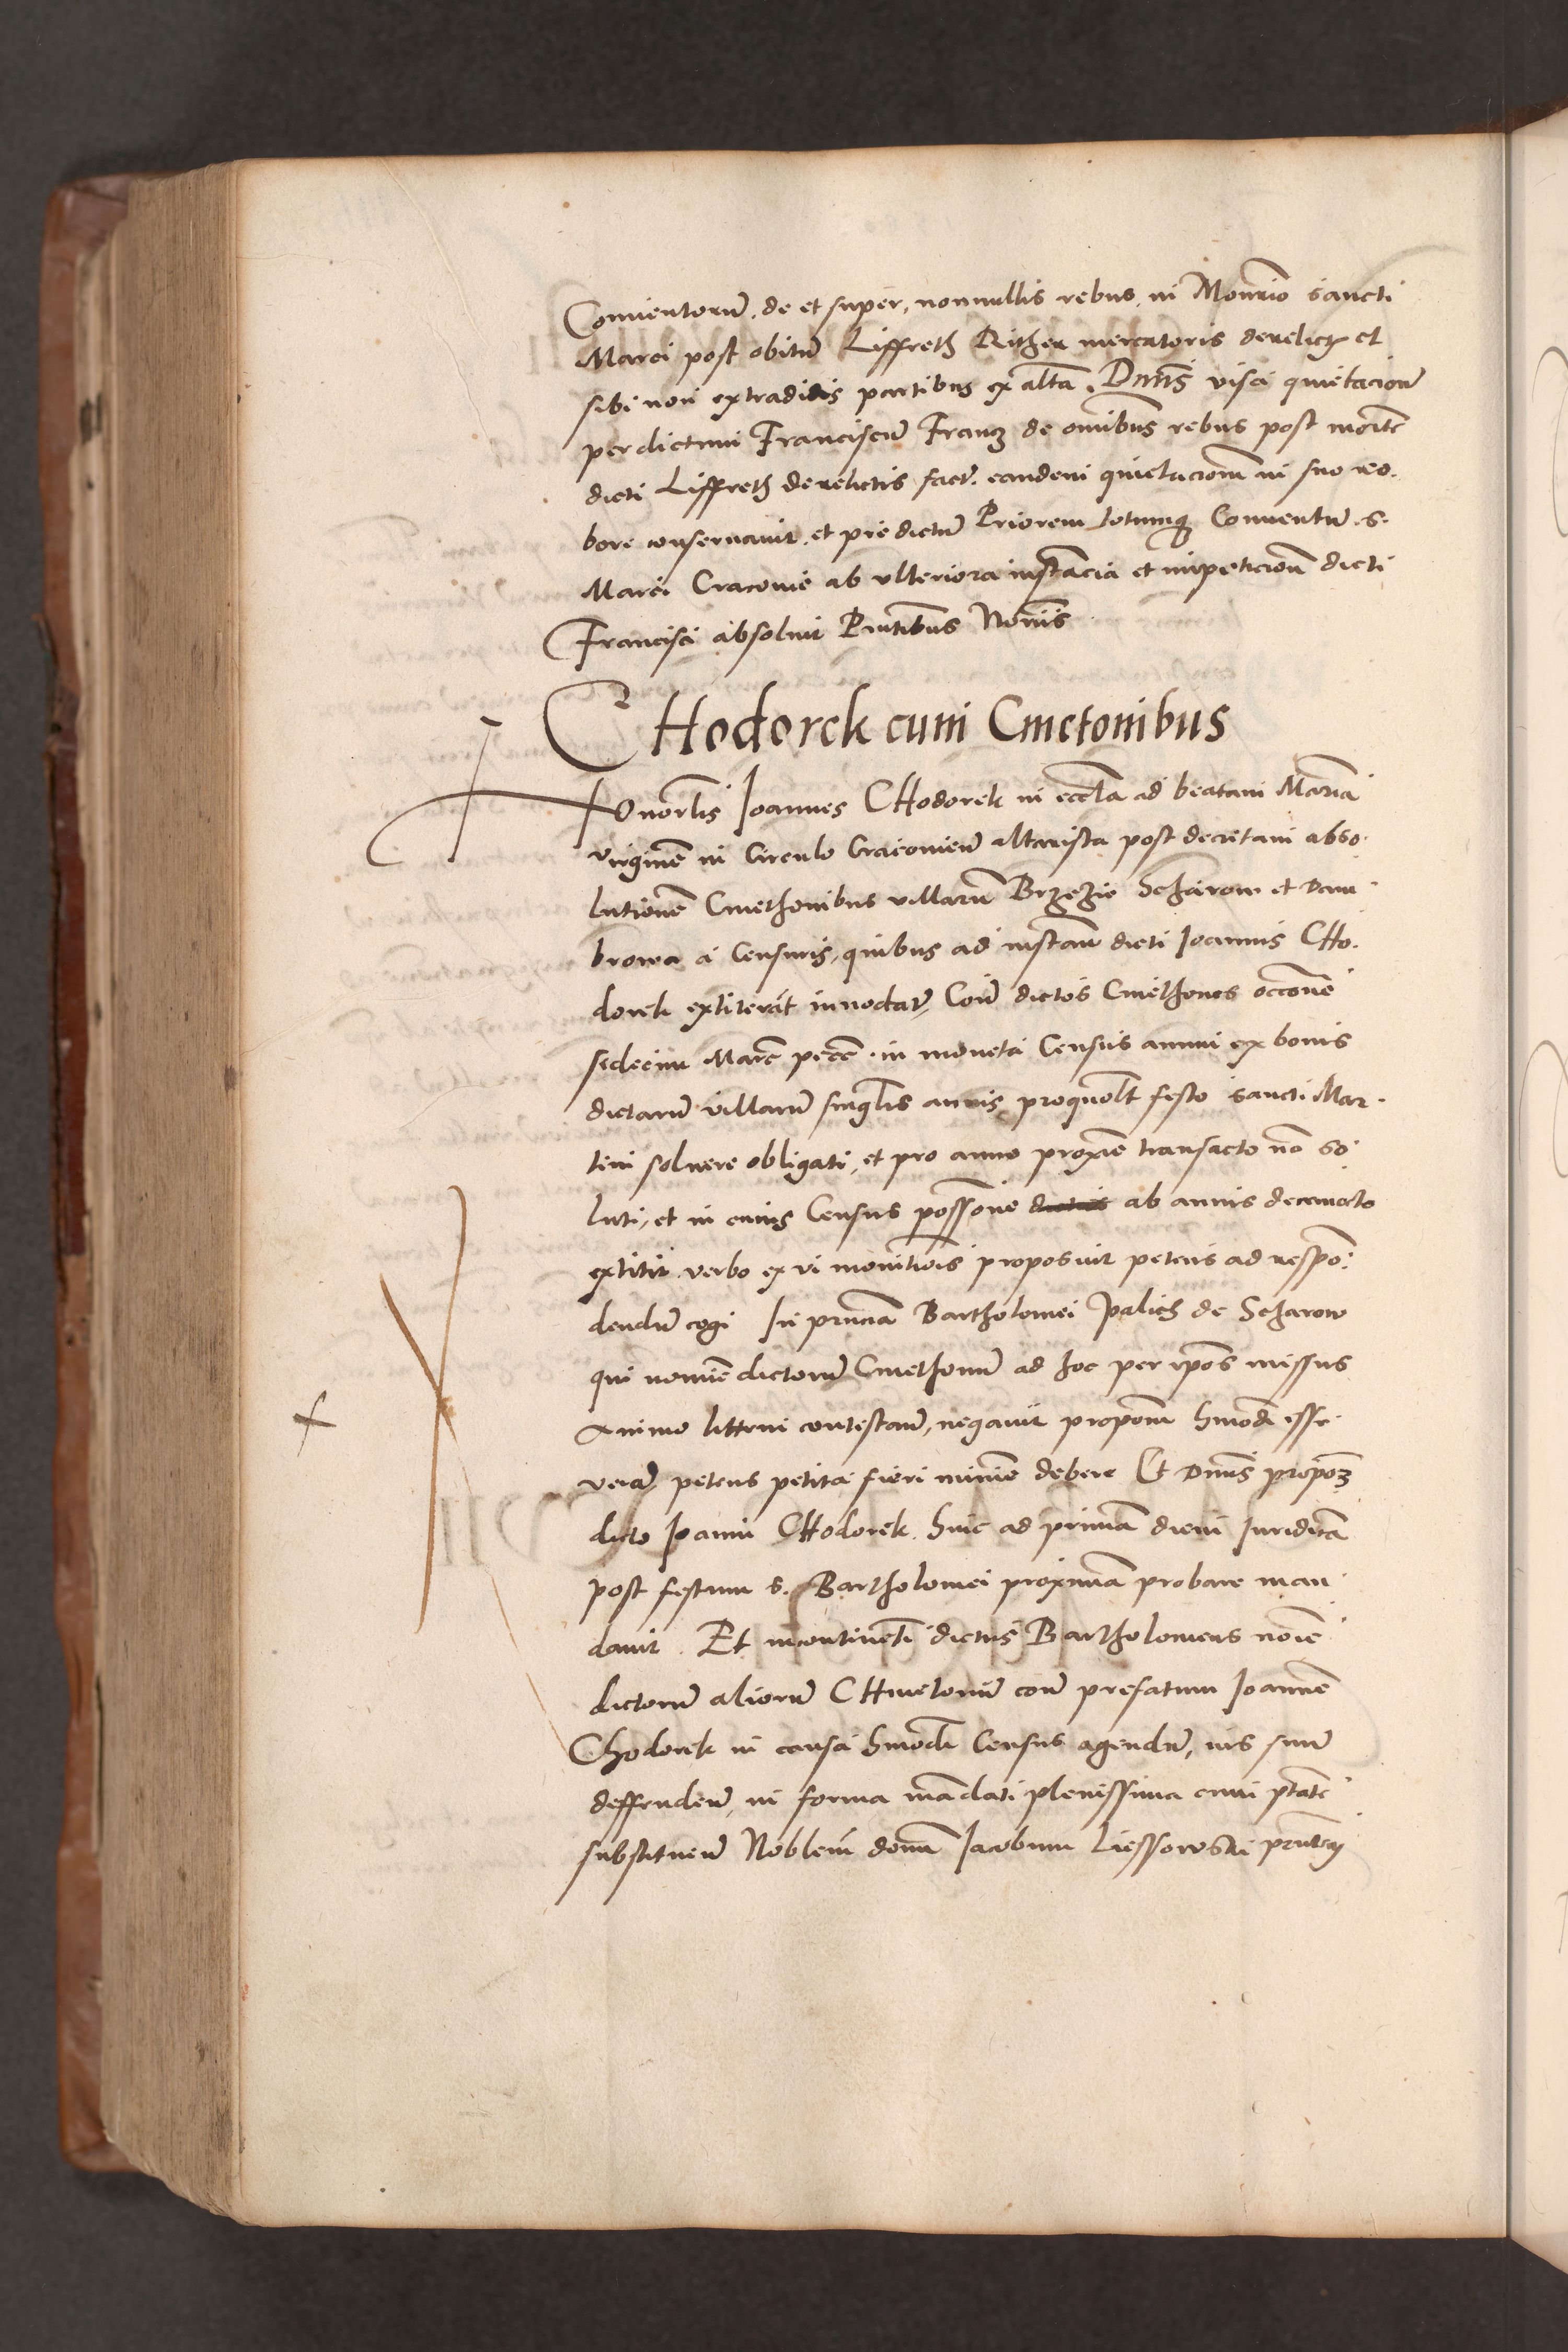 Conventorum̃. de et super, nonnullis rebus, in Monrio sancti
Marci post obitum̃ Liffreth Rither mercatoris derelict et
sibi non extraditis partibus ex alta. Dnus visa quietacion̄
per dictum Franciscum̃ Franz de omnibus rebus post mortē
dicti Liffreth derelictis fact. eandem quietacionem in suo ro.
bore conservavit et predictum̃ Priorem totumq Conventum̃. s.
Marci Cracovie ab ulteriora instancia et impeticion̄ dicti
Francisci absolvit Pntibus Nomis
CHodorek cum Cmetonibus
Honorlis Ioannes CHodorek in eccla ad beatam Mariā
virginē in Circulo Cracovien̄ altarista post decretam abso.
lutionē Cmethonibus villarum̃ Brzezie Scharow et Dam
browa a Censuris, quibus ad instan̄ dicti Ioannis CHo.
dorek extiterāt innodat, Con̄ dictos Cmethones occone
sedecim Marc pecc. in moneta Census annui ex bonis
dictarum̃ villarum̃ singlis annis pro quolt festo sancti Mar.
tini solvere obligati, et pro anno proxīe transacto nō so
luti, et in cuius Census possone ab annis decemocto
extitit verbo ex vi monitiois proposuit petens ad respō.
dendum̃ cogi In prnciā Bartholomei Palich de Scharow
qui nomīe dictorum̃ Cmethonum̃ ad hoc per ipos missus
animo littem contestan̄, negavit propom hmodi esse
verā petens petita fieri minīe debere Et Dnus propom
dicto Ioanni CHodorek. hinc ad primā diem Iuridicā
post festum s. Bartholomei proximā probare man
davit. Et incontinēti dictus Bartholomeus noīe
dictorum̃ aliorum̃ CHmetonum̃ con̄ prefatum Ioannē
Chodorek in causa hmodi Census agendum̃, ius suum̃
deffenden̄, in forma mādati plenissima cum ptate
substituen̄ Noblem donm Iacobum Liessowski prntem